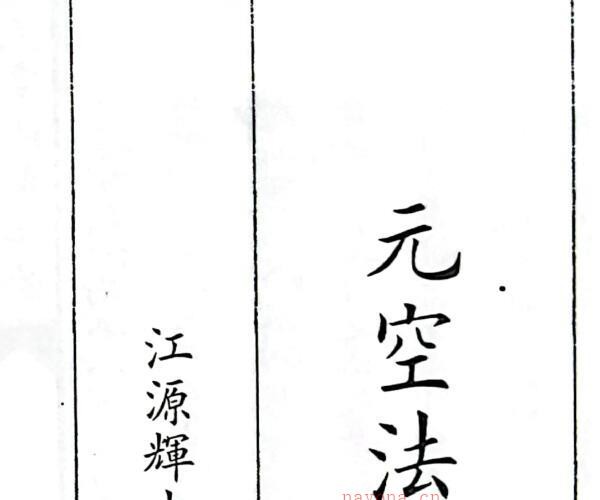 元空法
江源輝
nayona.cn